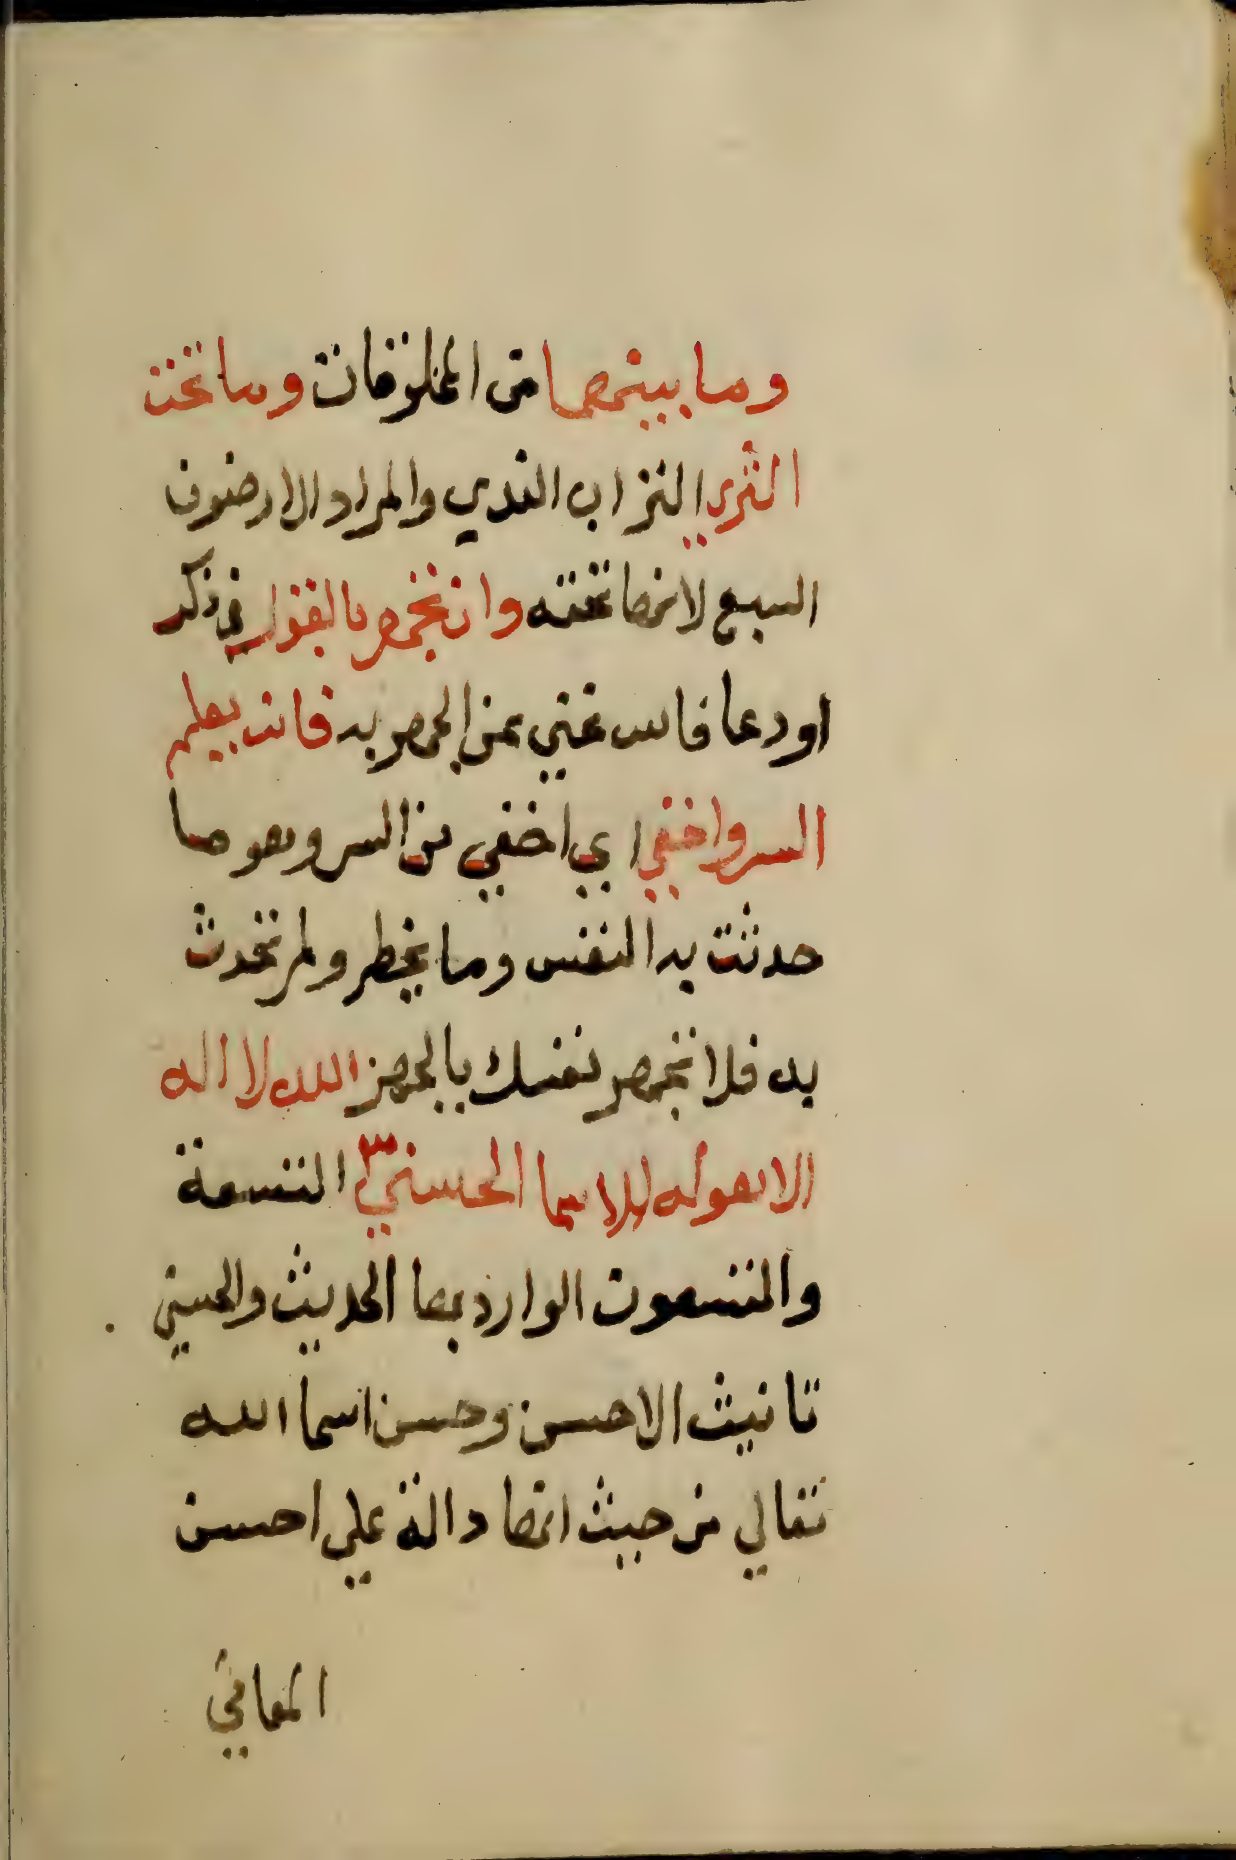 وما بينهما من المخلوقات وما تحت
الثري التراب الندي والمراد الارضون
السبع لانها تحته وان تجهر بالقول في ذكر
او دعا فالله غني عن الجهر به فانه يعلم
السر واخفي اي اخفي من السر وهو ما
حدثت به النفس وما يخطر ولم تحدث
به فلا تجهر نفسك بالجهر الله لا اله
الا هو له الاسما الحسني ٣ التسعة
والتسعون الوارد بها الحديث والحسني
تانيث الاحسن وحسن اسما الله
تعالي من حيث انها دالة علي احسن
المعاني